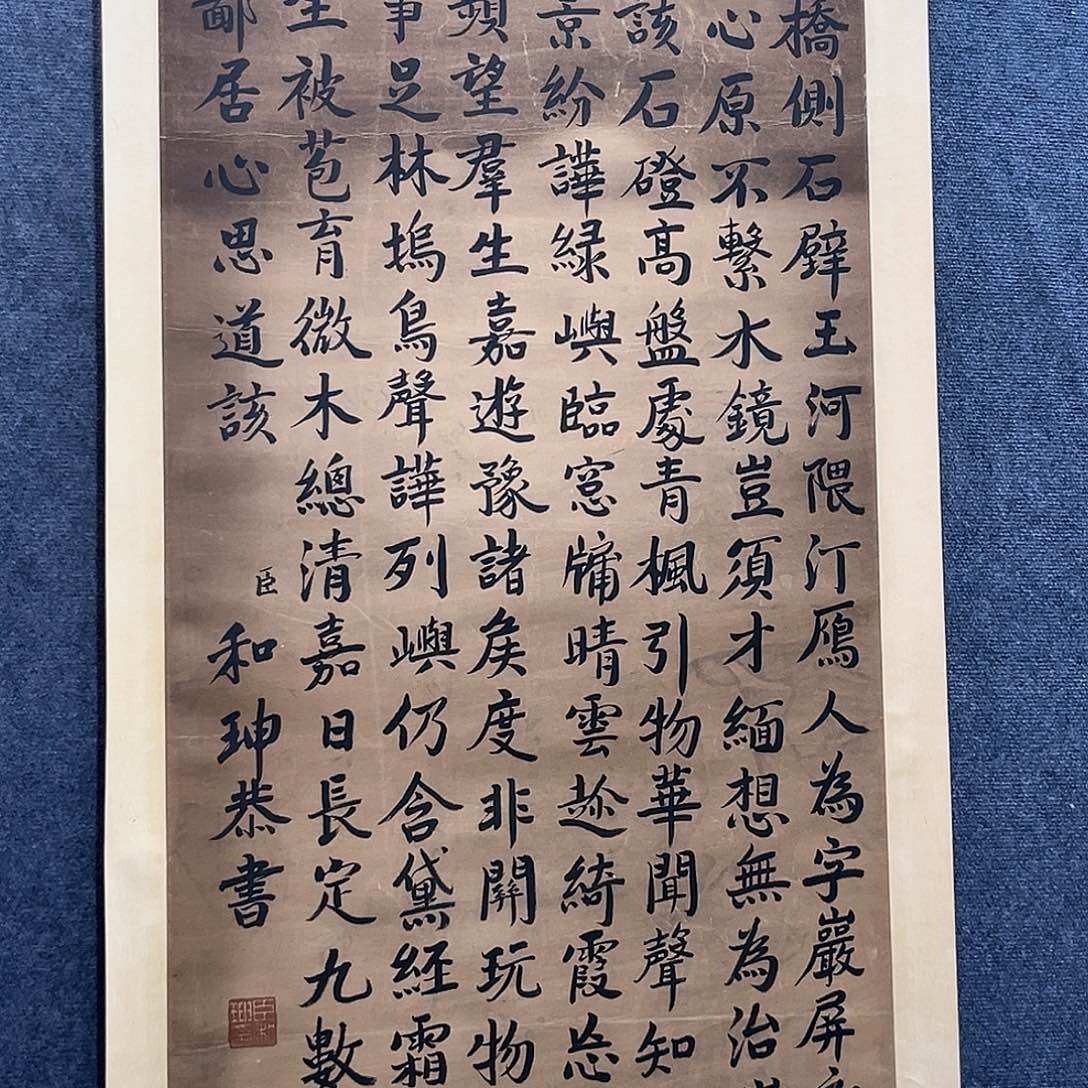 橋側石壁玉河隈汀鴈人為字巖屏
心原不繫水鏡豈須才緬想無為治
該石磴高盤處青楓引物華聞聲知
景紛譁緑嶼臨窓牗晴雲趂綺霞忘
望羣生嘉遊豫諸矦度非關玩物
事足林塢鳥聲譁列嶼仍含黛經霜
生被苞育微木總清嘉日長定九數
鄙居心思道該
臣
和珅恭書